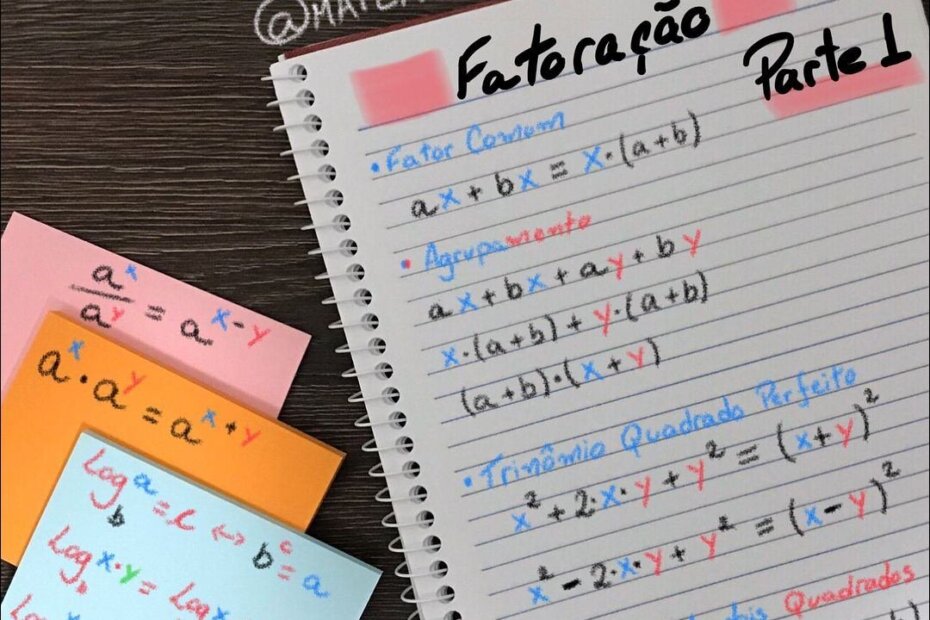 Fatoração
Parte 1
• Fator Comum
ax + bx = x·(a+b)
• Agrupamento
ax + bx + ay + by
x·(a+b) + y·(a+b)
(a+b)·(x+y)
• Trinômio Quadrado Perfeito
x² + 2·x·y + y² = (x+y)²
x² - 2·x·y + y² = (x-y)²
Quadrados
aˣ/aʸ = aˣ⁻ʸ
aˣ · aʸ = aˣ⁺ʸ
Log_b a = c ↔ bᶜ = a
Log x·y = Log x